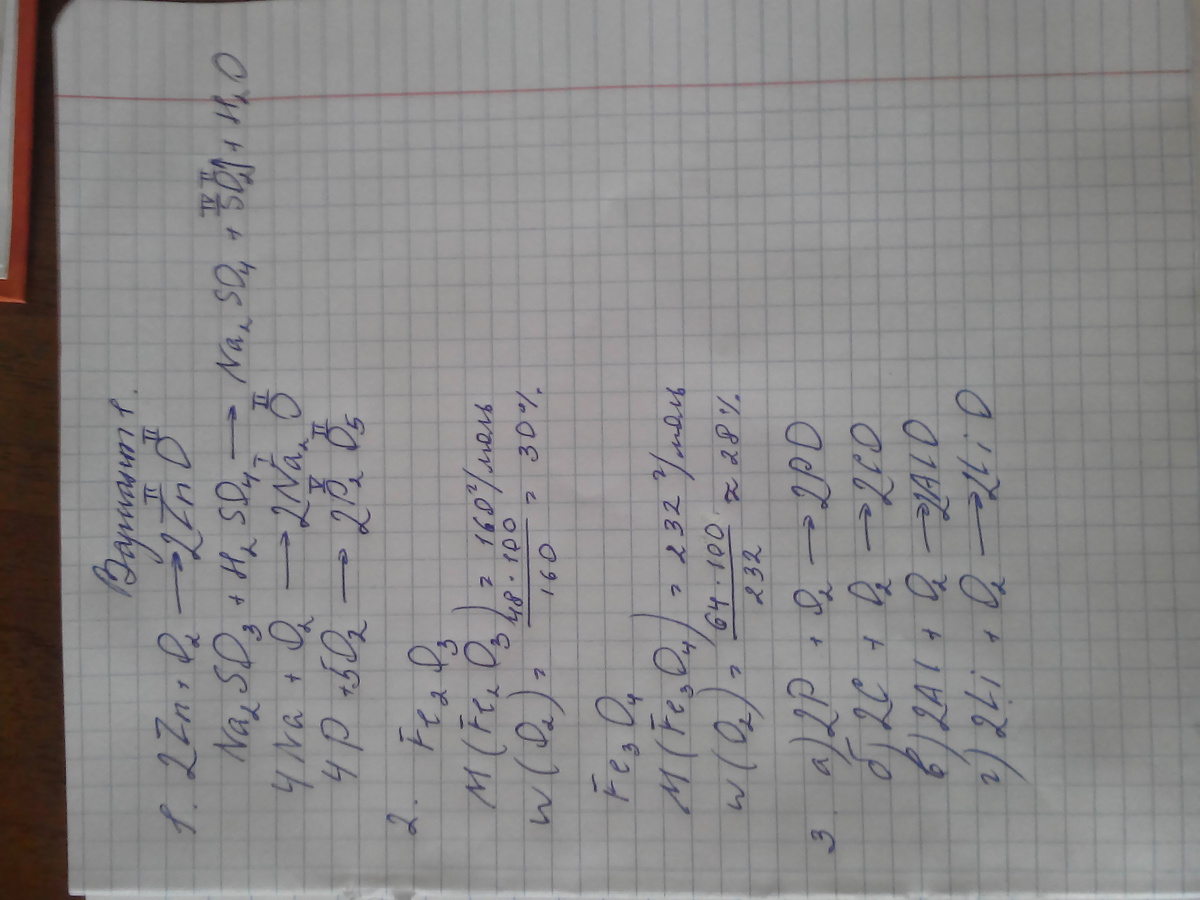 Вариант 1.
1. 2Zn + O₂ → 2ZnO
II II
Na₂SO₃ + H₂SO₄ → Na₂SO₄ + SO₂↑ + H₂O
IV II
4Na + O₂ → 2Na₂O
I II
4P + 5O₂ → 2P₂O₅
V II
2. Fe₂O₃
M(Fe₂O₃) = 160 г/моль
w(O₂) = 48·100/160 = 30%.
Fe₃O₄
M(Fe₃O₄) = 232 г/моль
w(O₂) = 64·100/232 ≈ 28%
3. а) 2P + O₂ → 2PO
б) 2C + O₂ → 2CO
в) 2Al + O₂ → 2AlO
г) 2Li + O₂ → 2LiO